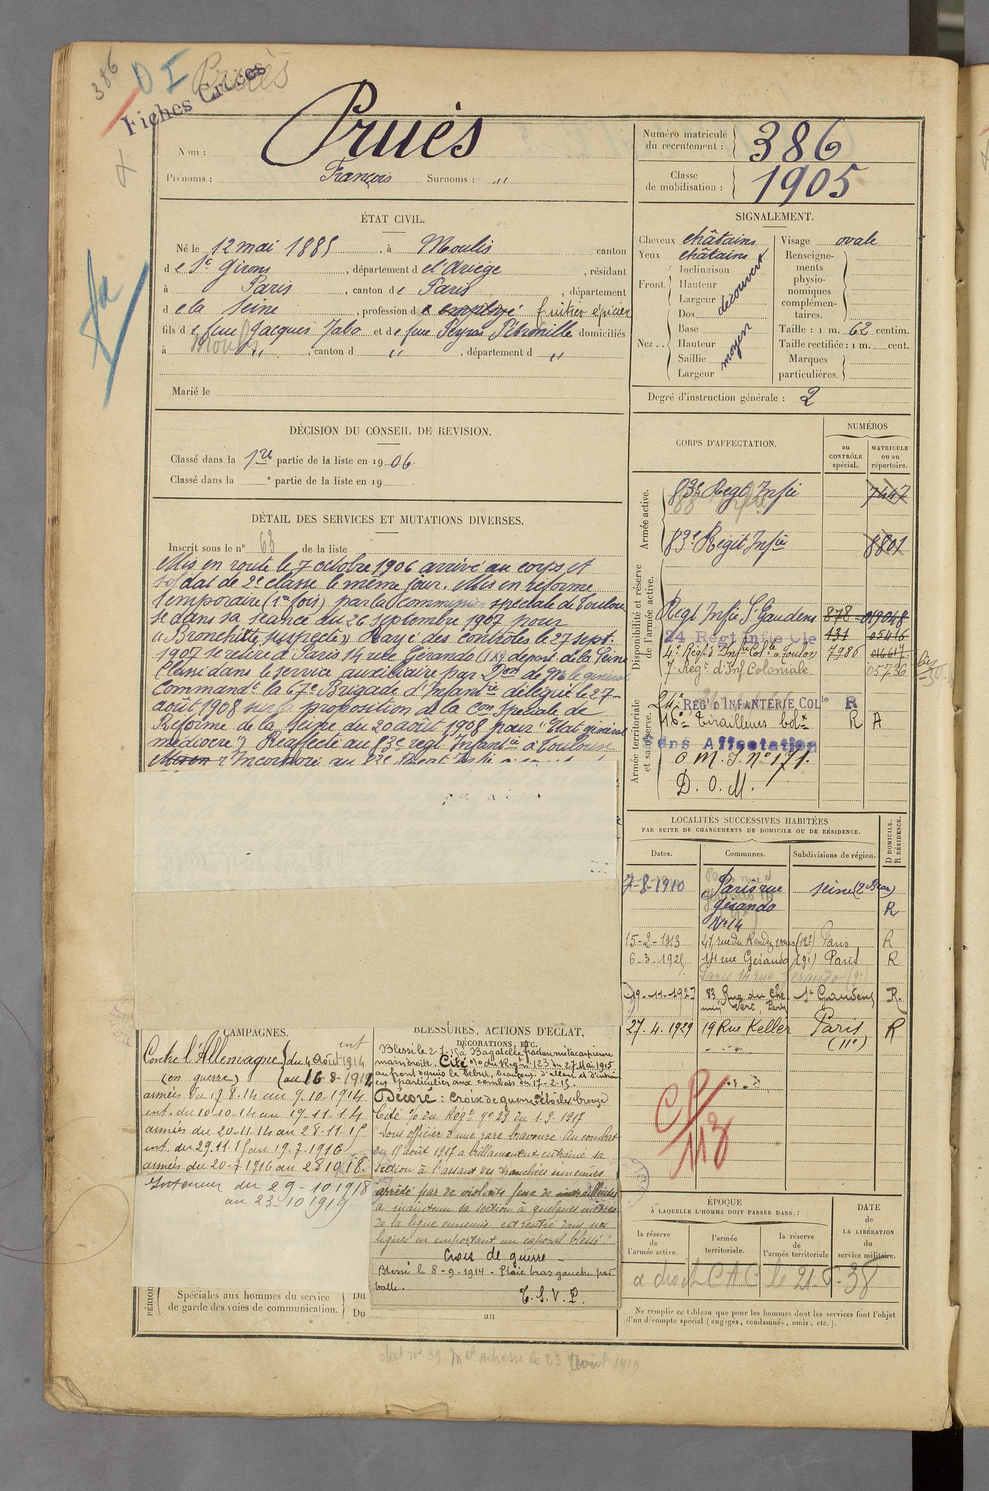 386
D I Pruès
Fiches Créées
Nom : Pruès
Prénoms : François Surnoms : "
Numéro matricule du recrutement : 386
Classe de mobilisation : 1905
ÉTAT CIVIL.
Né le 12 mai 1885, à Moulis canton
de St Girons, département de l'Ariège, résidant
à Paris, canton de Paris, département
de la Seine, profession d employé fruitier épicier
fils de feu Jacques Jala et de feue Peyras Pétronille domiciliés
à ", canton d ", département d "
Marié le
SIGNALEMENT.
Cheveux châtains
Yeux châtains
Front. Inclinaison Hauteur Largeur découvert
Nez. Dos Base Hauteur Saillie Largeur moyen
Visage ovale
Renseignements physionomiques complémentaires.
Taille : 1 m. 62 centim.
Taille rectifiée : 1 m. cent.
Marques particulières.
Degré d'instruction générale : 2
DÉCISION DU CONSEIL DE REVISION.
Classé dans la 1re partie de la liste en 1906.
Classé dans la e partie de la liste en 19
DÉTAIL DES SERVICES ET MUTATIONS DIVERSES.
Inscrit sous le n° 63 de la liste
Mis en route le 7 octobre 1906 arrivé au corps et
soldat de 2e classe le même jour. Mis en réforme
temporaire (1re fois) par la Commission spéciale de Toulou
se dans sa séance du 26 septembre 1907 pour
"Bronchite suspecte" Rayé des contrôles le 27 sept.
1907 se retire à Paris 14 rue Gérando (IXe) départ. de la Seine
Classé dans le service auxiliaire par Don de Mr le général
Commandt la 67e Brigade d'Infanterie délégué le 27
août 1908 sur la proposition de la Con Spéciale de
Réforme de la Seine du 20 août 1908 pour "Etat général
médiocre". Réaffecté au 83e regt Infantie à Toulouse
CORPS D'AFFECTATION.
NUMÉROS
au CONTRÔLE spécial.
MATRICULE ou au répertoire.
Armée active.
83e Regt Infie 7447
83e Régit Infie 8801
Disponibilité et réserve de l'armée active.
Regt Infie St Gaudens 878 019048
24 Regt Infie Cle 131 05416
4e Régt d'Infie Cole à Toulon 7986 016617
7 Regt d'Inf Coloniale. 05736
Armée territoriale et sa réserve.
21e REGt D'INFANTERIE COLle R
16e Tirailleurs Colx R A
Sans Affectation
O M. I. N° 171.
D. O. M.
LOCALITÉS SUCCESSIVES HABITÉES
PAR SUITE DE CHANGEMENTS DE DOMICILE OU DE RÉSIDENCE.
Dates. Communes. Subdivisions de région. D DOMICILE. R RÉSIDENCE.
7-8-1910 Paris rue Gérando N° 14 Seine (2e Bau) R
15-2-1913 41 rue du Rendez vous (12e) Paris R
6-3-1925 14 rue Gerando (9e) Paris R
19-11-1927 83 Rue du Chemin Vert, Paris St Gaudens R.
27.4.1929 19 Rue Keller Paris (11e) R
CP/113
CAMPAGNES.
Contre l'Allemagne du 4 Août 1914
(en guerre) au 16-8-1919
armées du 17.8.14 au 9.10.1914
int. du 10-10-14 au 19.11.14
armées du 20-11.14 au 28.11.15
int. du 29.11.15 au 19.7.1916
armées du 20-7-1916 au 28 10 18.
Intérieur du 29-10-1918
au 23-10 1919
BLESSURES, ACTIONS D'ÉCLAT,
DÉCORATIONS, ETC.
Blessé le 2-7-15 à Bagatelle fracture métacarpienne
main droite. Cité o/o du Regt n° 123 du 27 Mai 1915
au front depuis le début, beaucoup d'allant et d'entrain
en particulier aux combats du 17-2-15.
Décoré : Croix de guerre étoile bronze
Cité o/o du Régt n° 23 du 1.9.1917
"Sous officier d'une rare bravoure. Au combat
du 19 août 1917 a brillamment entraîné sa
section à l'assaut des tranchées ennemies
arrêté par de violents feux de mitrailleuses
a maintenu sa section à quelques mètres
de la ligne ennemie, est rentré dans nos
lignes en emportant un caporal blessé."
Croix de guerre
Blessé le 8-9-1914 - Plaie bras gauche par
balle.
T. S. V. P.
Spéciales aux hommes du service
de garde des voies de communication.
Du
Du au
ÉPOQUE
À LAQUELLE L'HOMME DOIT PASSER DANS :
la réserve de l'armée active.
l'armée territoriale.
la réserve de l'armée territoriale
DATE de LA LIBÉRATION du service militaire.
a droit CAC le 21-8-38
Ne remplir ce tableau que pour les hommes dont les services font l'objet
d'un décompte spécial (engagés, condamnés, omis, etc.).